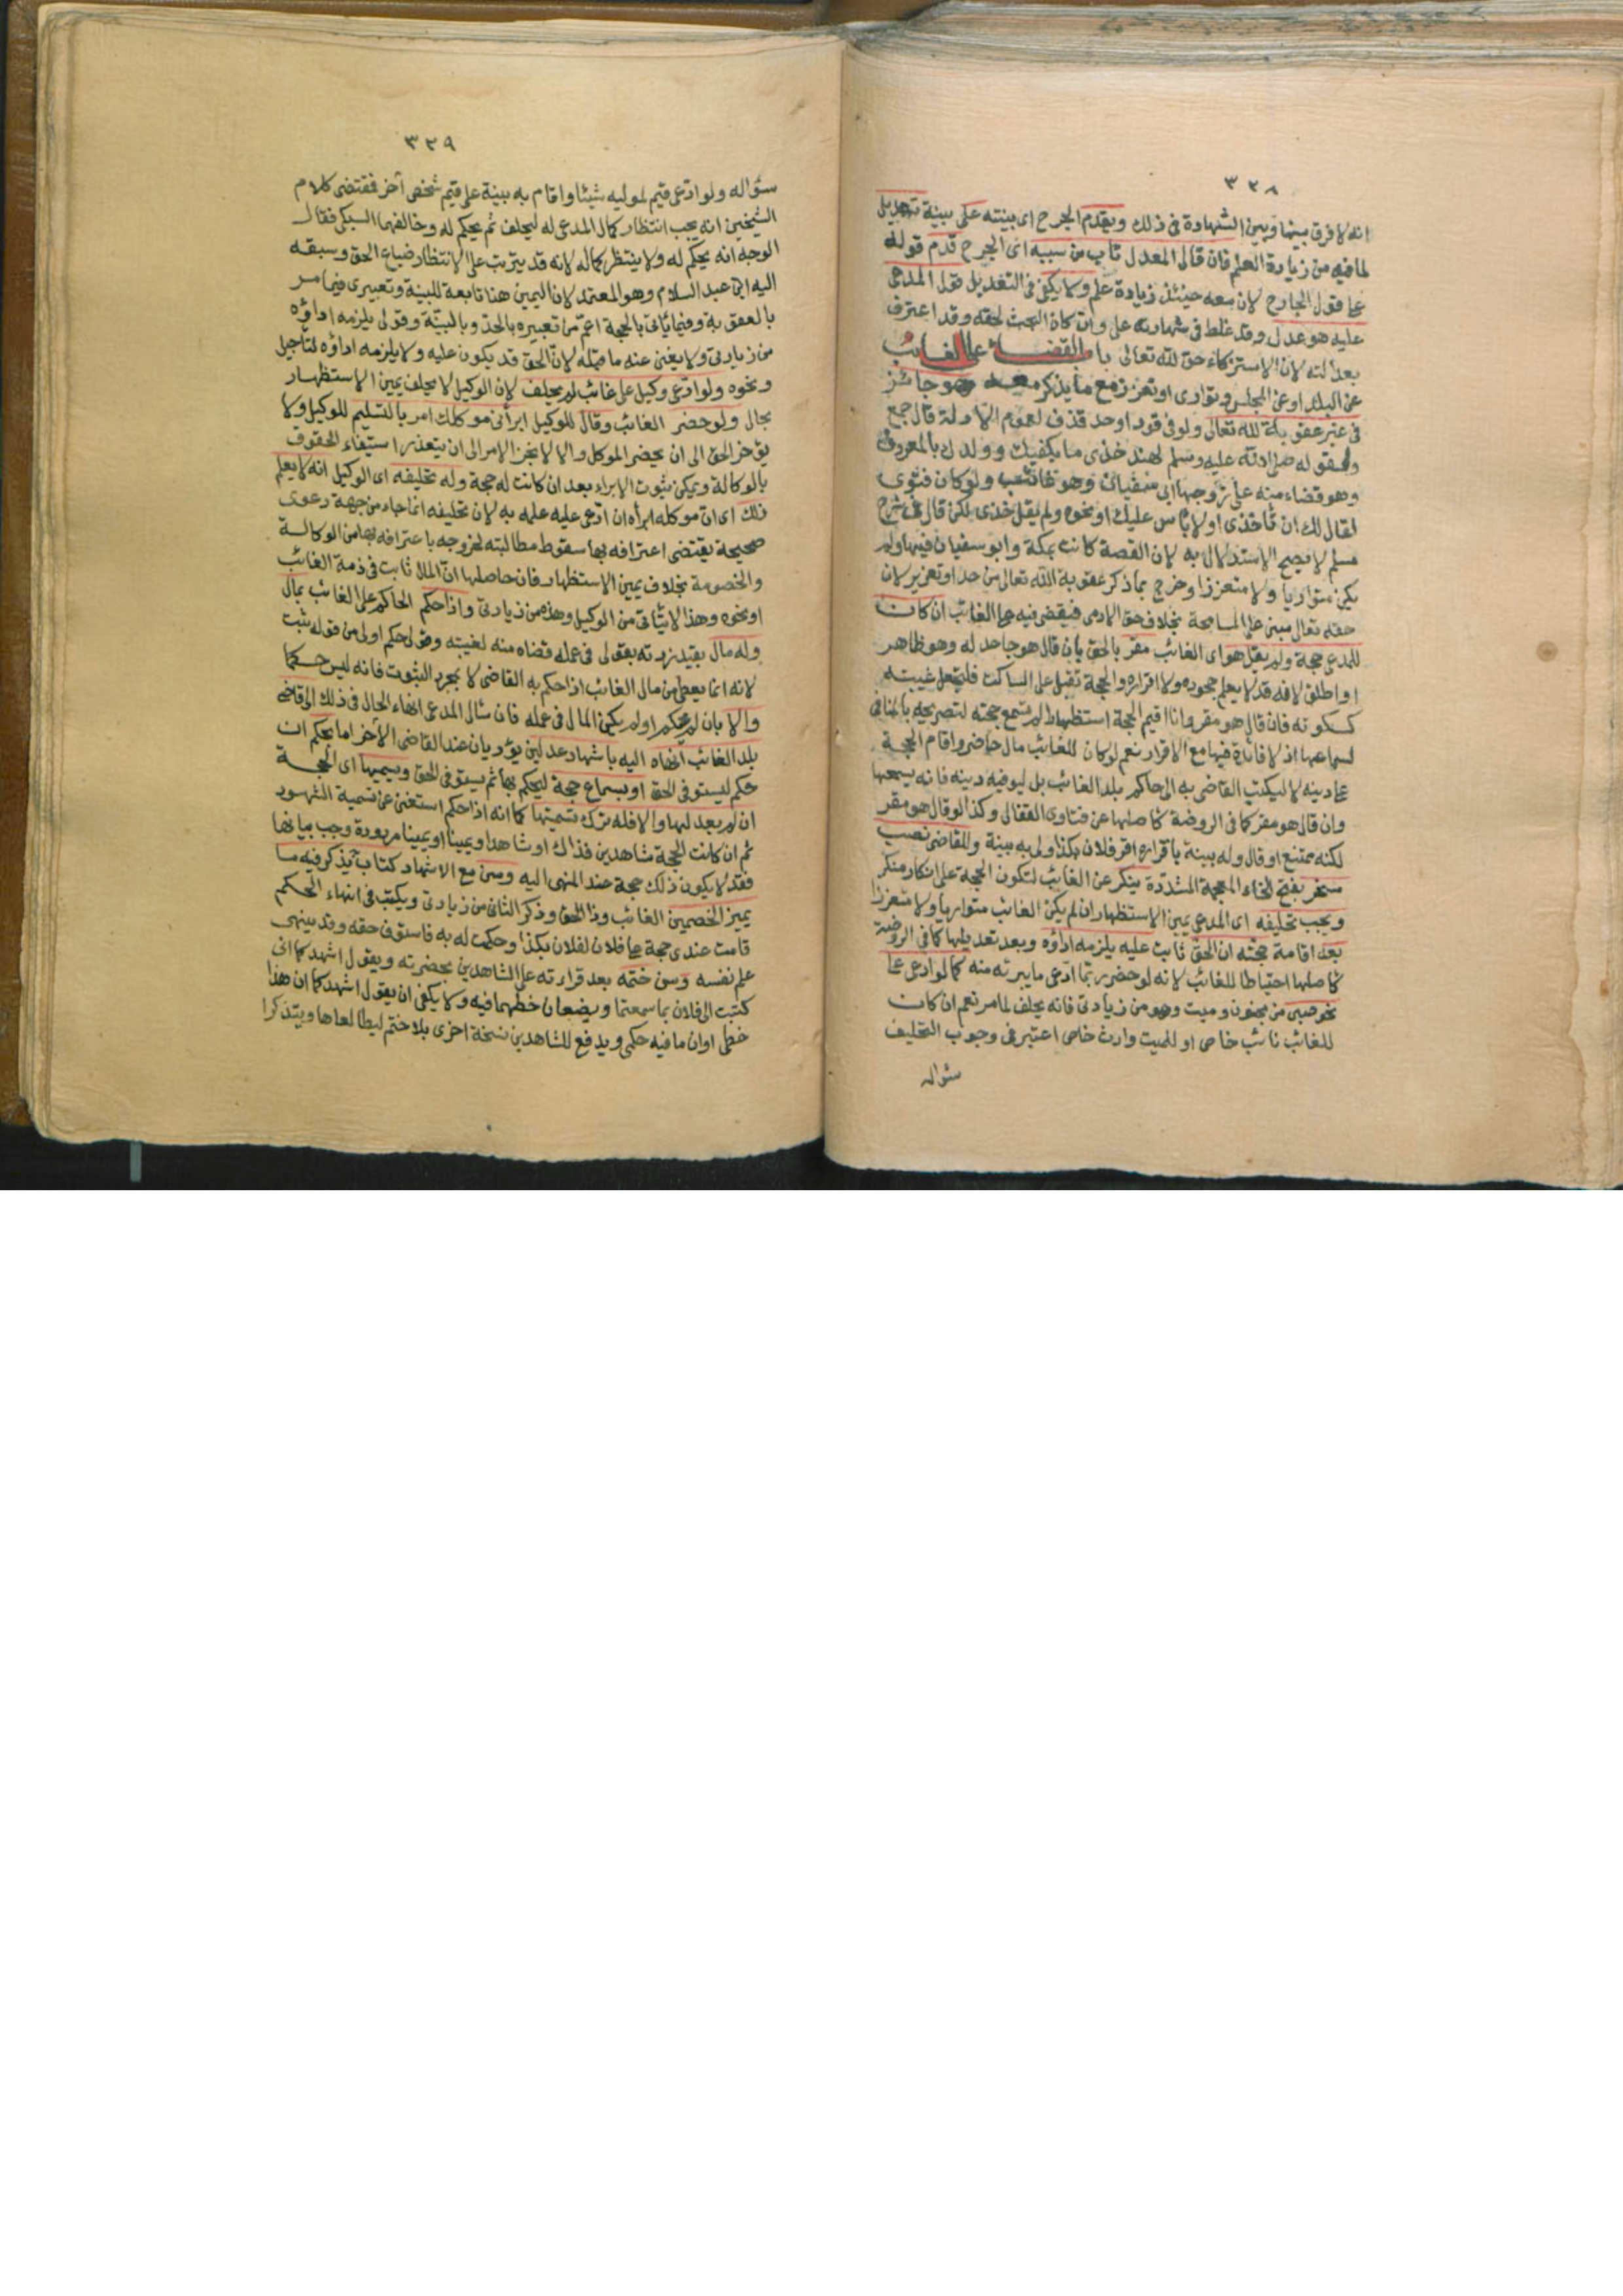 ٣٢٨
انه لا فرق بينها وبين الشهادة فى ذلك ويقدم الجرح اى بينته على بينة تعديل
لما فيه من زيادة العلم فان قال المعدل تاب من سببه اى الجرح قدم قوله
على قول الجارح لان معه حينئذ زيادة علم ولا يكفى فى التعديل قول المدعى
عليه هو عدل وقد غلط فى شهادته على وان كان البحث لحقه وقد اعترف
بعدالته لان الاستزكاء حق لله تعالى باب القضاء على الغائب
عن البلد او عن المجلس وتوارى او تعزز مع ما يذكر معه هو جائز
فى غير عقوبة لله تعالى ولو فى قود او حد قذف لعموم الادلة قال جمع
ولقوله صلى الله عليه وسلم لهند خذى ما يكفيك وولدك بالمعروف
وهو قضاء منه على زوجها ابى سفيان وهو غائب ولو كان فتوى
لقال لك ان تأخذى او لا بأس عليك او نحوه ولم يقل خذى لكن قال فى شرح
مسلم لا يصح الاستدلال به لان القصة كانت بمكة وابو سفيان فيها ولم
يكن متواريا ولا متعززا وخرج بما ذكر عقوبة الله تعالى من حد او تعزير لان
حقه تعالى مبنى على المسامحة بخلاف حق الادمى فيقضى فيه على الغائب ان كان
للمدعى حجة ولم يقل هو اى الغائب مقر بالحق بان قال هو جاحد له وهو ظاهر
او اطلق لانه قد لا يعلم جحوده ولا اقراره والحجة تقبل على الساكت فلتجعل غيبته
كسكوته فان قال هو مقر وانا اقيم الحجة استظهارا لم تسمع حجته لتصريحه بالمنافى
لسماعها اذ لا فائدة فيها مع الاقرار نعم لو كان للغائب مال حاضر واقام الحجة
على دينه لا ليكتب القاضى به الى حاكم بلد الغائب بل ليوفيه دينه فانه يسمعها
وان قال هو مقر كما فى الروضة كأصلها عن فتاوى القفال وكذا لو قال هو مقر
لكنه ممتنع او قال وله بينة باقراره اقر فلان بكذا ولى به بينة وللقاضى نصب
مسخر بفتح الخاء المعجمة المشددة ينكر عن الغائب لتكون الحجة على انكار منكر
ويجب تحليفه اى المدعى يمين الاستظهار ان لم يكن الغائب متواريا ولا متعززا
بعد اقامة حجته ان الحق ثابت عليه يلزمه اداؤه وبعد تعديلها كما فى الروضة
كأصلها احتياطا للغائب لانه لو حضر ربما ادعى ما يبرئه منه كما لو ادعى على
نحو صبى من مجنون وميت وهو من زيادتى فانه يحلف لما مر نعم ان كان
للغائب نائب خاص او للميت وارث خاص اعتبر فى وجوب التحليف
سؤاله
٣٢٩
سؤاله ولو ادعى قيم لموليه شيئا واقام به بينة على قيم شخص آخر فمقتضى كلام
الشيخين انه يجب انتظار كمال المدعى له ليحلف ثم يحكم له وخالفهما السبكى فقال
الوجه انه يحكم له ولا ينتظر كماله لانه قد يترتب على الانتظار ضياع الحق وسبقه
اليه ابن عبد السلام وهو المعتمد لان اليمين هنا تابعة للبينة وتعبيرى فيما مر
بالعقوبة وفيما يأتى بالحجة اعم من تعبيره بالحد وبالبينة وقولى يلزمه اداؤه
من زيادتى ولا يغنى عنه ما قبله لان الحق قد يكون عليه ولا يلزمه اداؤه لتأجيل
ونحوه ولو ادعى وكيل على غائب لم يحلف لان الوكيل لا يحلف يمين الاستظهار
بحال ولو حضر الغائب وقال للوكيل ابرأنى موكلك امر بالتسليم للوكيل ولا
يؤخر الحق الى ان يحضر الموكل والا لانجر الامر الى ان يتعذر استيفاء الحقوق
بالوكالة ويمكن ثبوت الابراء بعد ان كانت له حجة وله تحليفه اى الوكيل انه لا يعلم
ذلك اى ان موكله ابرأه ان ادعى عليه علمه به لان تحليفه انما جاء من جهة دعوى
صحيحة يقتضى اعترافه بها سقوط مطالبته لخروجه باعترافه بها من الوكالة
والخصومة بخلاف يمين الاستظهار فان حاصلها ان المال ثابت فى ذمة الغائب
او نحوه وهذا لا يتأتى من الوكيل وهذه من زيادتى واذا حكم الحاكم على الغائب بمال
وله مال بقيد زدته بقولى فى عمله قضاه منه لغيبته وقولى حكم اولى من قوله ثبت
لانه انما يعطى من مال الغائب اذا حكم به القاضى لا بمجرد الثبوت فانه ليس حكما
والا بان لم يحكم او لم يكن المال فى عمله فان سأل المدعى انهاء الحال فى ذلك الى قاضى
بلد الغائب انهاه اليه باشهاد عدلين يؤديان عند القاضى الآخر اما بحكم ان
حكم ليستوفى الحق او بسماع حجة ليحكم بها ثم يستوفى الحق ويسميها اى الحجة
ان لم يعدلها والا فله ترك تسميتها كما انه اذا حكم استغنى عن تسمية الشهود
ثم ان كانت الحجة شاهدين فذاك او شاهدا ويمينا او يمينا مردودة وجب بيانها
فقد لا يكون ذلك حجة عند المنهى اليه وسن مع الاشهاد كتاب يذكر فيه ما
يميز الخصمين الغائب وذا الحق وذكر الثانى من زيادتى ويكتب فى انهاء الحكم
قامت عندى حجة على فلان لفلان بكذا وحكمت له به فاستوف حقه وقد ينهى
علم نفسه وسن ختمه بعد قراءته على الشاهدين بحضرته ويقول اشهدكما انى
كتبت الى فلان بما سمعتما ويضعان خطهما فيه ولا يكفى ان يقول اشهدكما ان هذا
خطى او ان ما فيه حكمى ويدفع للشاهدين نسخة اخرى بلا ختم ليطالعاها ويتذكرا